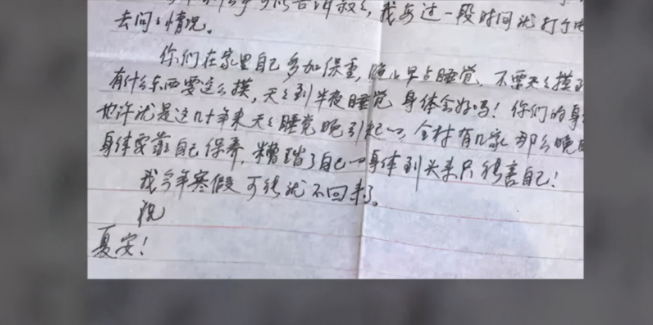 我每过一段时间就打个电
去问了情况。
你们在家里自己多加保重，晚上早点睡觉，不要天天摸到
有什么东西要这么摸，天天到半夜睡觉 身体会好吗！你们的身
也许就是这几十年来天天睡觉晚引起的，全村有几家 那么晚
身体要靠自己保养，糟蹋了自己的身体到头来只能害自己！
我今年寒假 可能就不回来了。
祝
夏安！